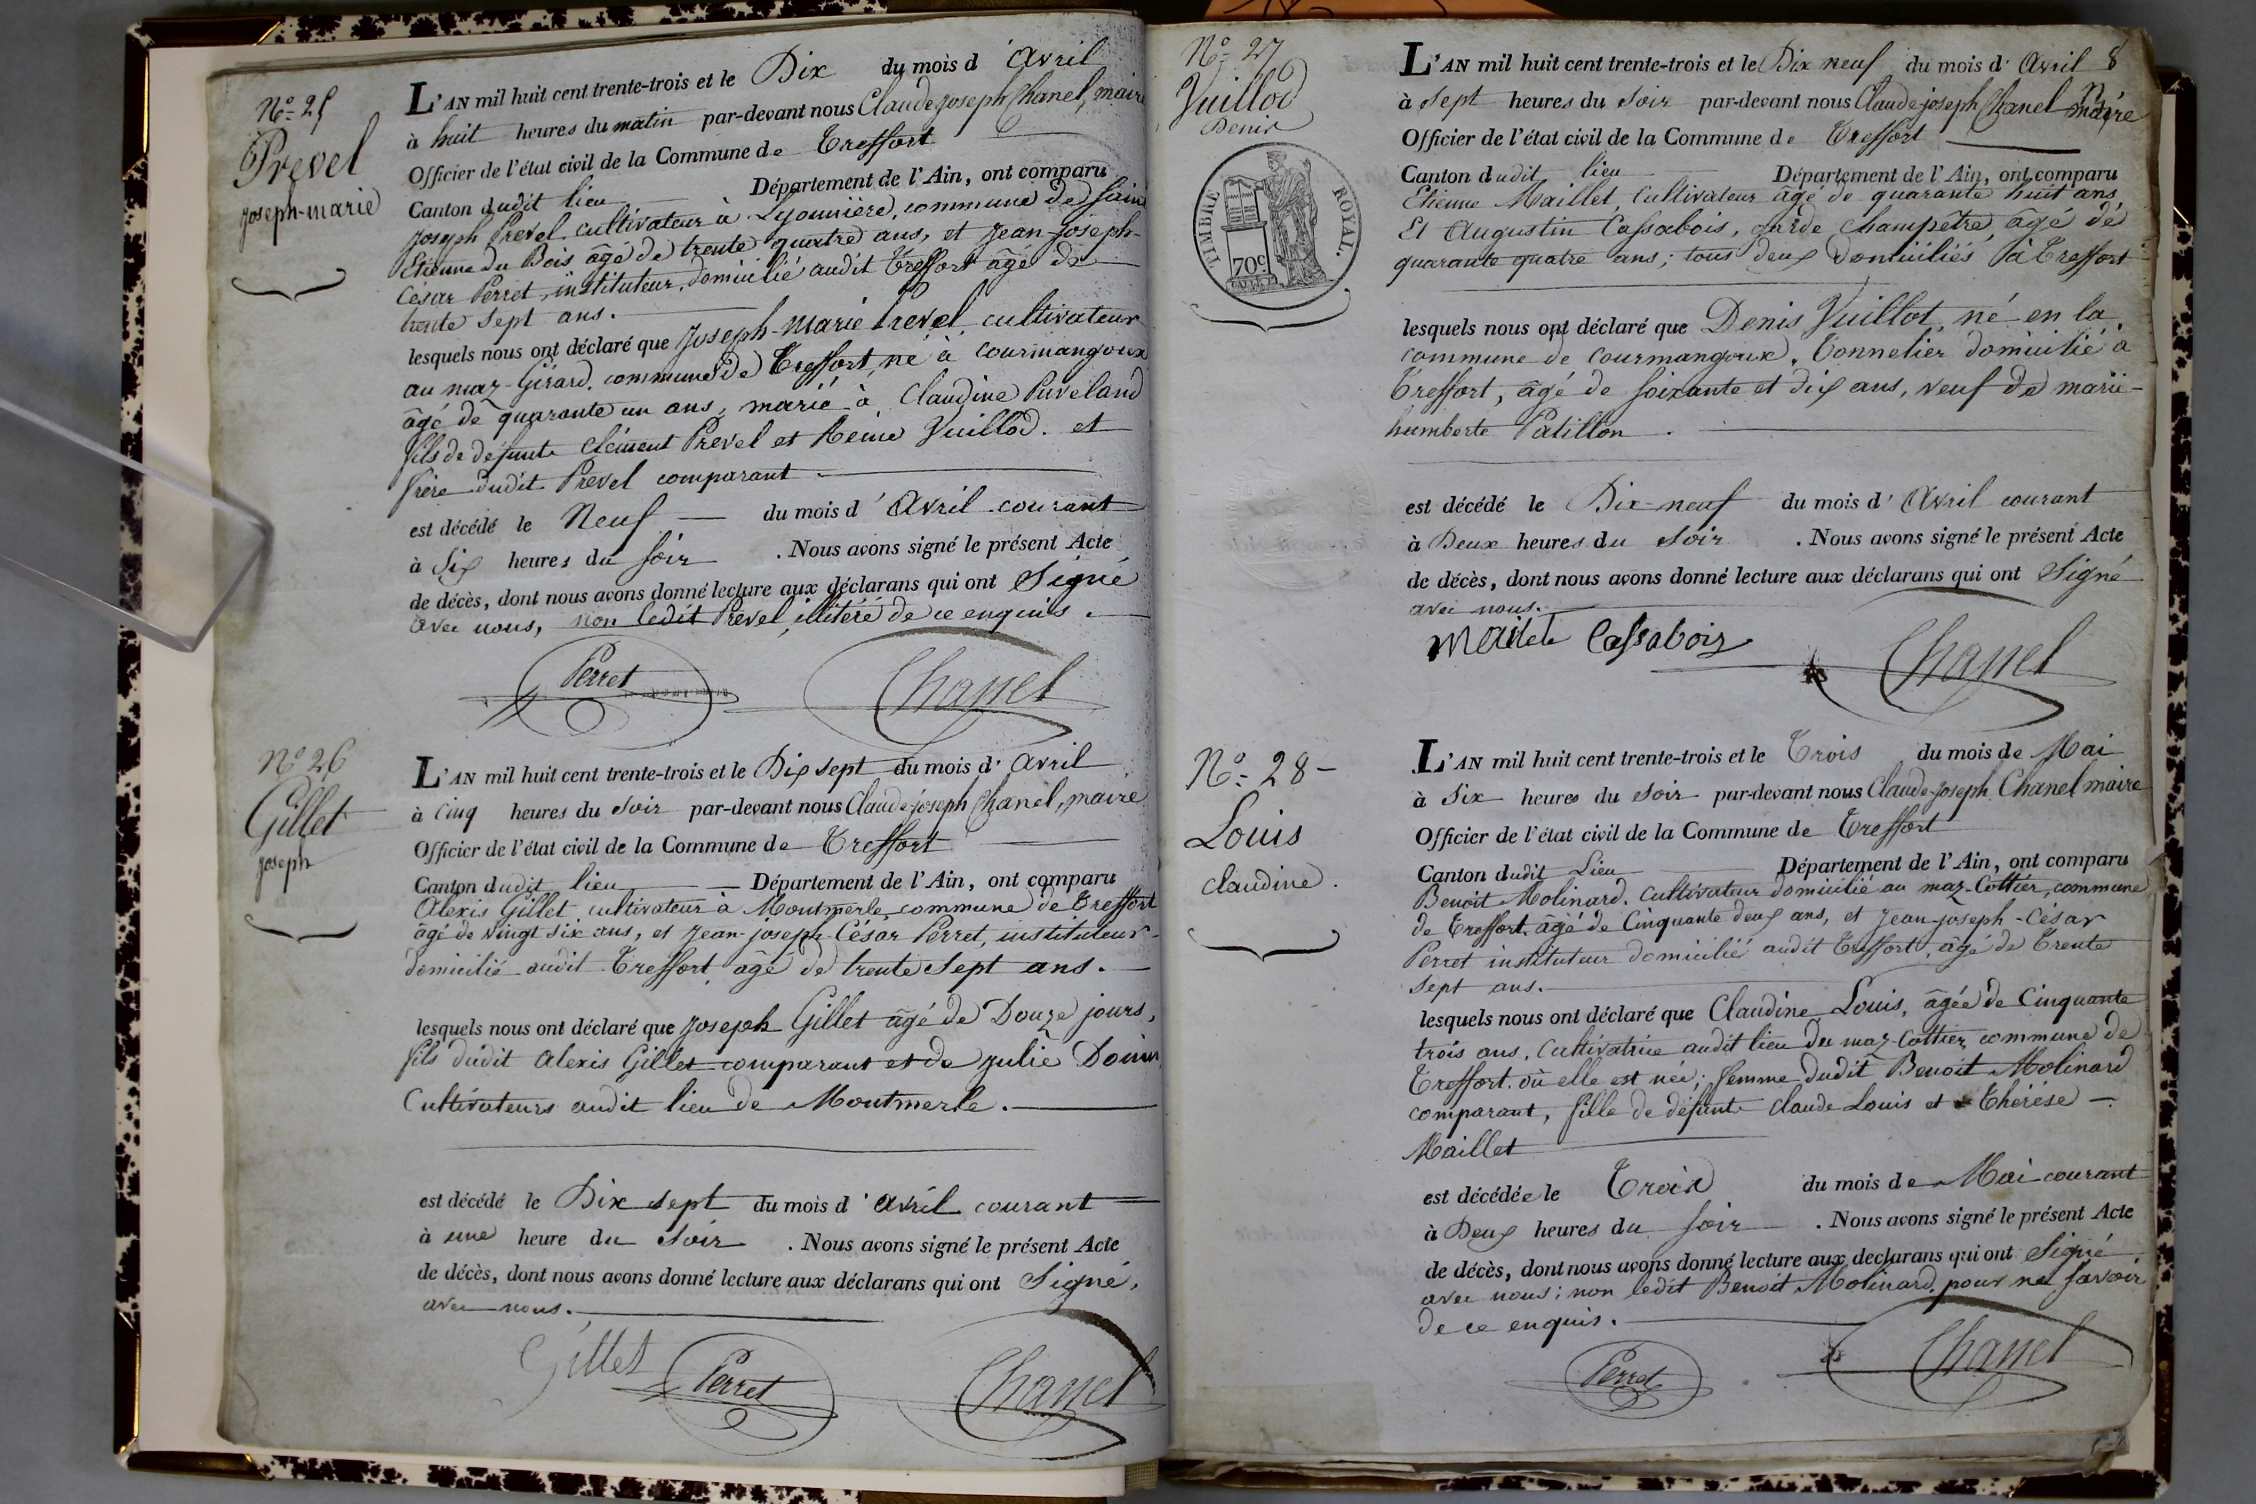 N.o 25
Prevel
joseph-marie
L'AN mil huit cent trente-trois et le Dix du mois d'avril
à huit heures du matin par-devant nous Claude joseph Chanel, maire
Officier de l'état civil de la Commune de Treffort
Canton dudit lieu Département de l'Ain, ont comparu
joseph Prevel cultivateur à Lyonnière, commune de Saint
Etienne du Bois âgé de trente quatre ans, et jean-joseph-
César Perret, instituteur, domicilié audit Treffort âgé de
trente sept ans.
lesquels nous ont déclaré que joseph-marie Prevel, cultivateur
au maz-Girard, commune de Treffort, né à courmangoux
âgé de quarante un ans, marié à Claudine Puveland
fils de défunts Clément Prevel et Reine Vuillod. et
frère dudit Prevel comparant
est décédé le Neuf du mois d'avril courant
à Six heures du soir . Nous avons signé le présent Acte
de décès, dont nous avons donné lecture aux déclarans qui ont Signé
avec nous, non ledit Prevel, illitéré de ce enquis.
Perret Chanel
N.o 26
Gillet
joseph
L'AN mil huit cent trente-trois et le Dix sept du mois d'avril
à cinq heures du soir par-devant nous Claude joseph Chanel, maire
Officier de l'état civil de la Commune de Treffort
Canton dudit lieu Département de l'Ain, ont comparu
Alexis Gillet, cultivateur à Montmerle, commune de Treffort
âgé de vingt six ans, et jean-joseph-César Perret, instituteur
domicilié audit Treffort âgé de trente sept ans.
lesquels nous ont déclaré que joseph Gillet âgé de Douze jours,
fils dudit alexis Gillet comparant et de julie
Cultivateurs audit lieu de Montmerle.
est décédé le Dix sept du mois d'avril courant
à une heure du soir . Nous avons signé le présent Acte
de décès, dont nous avons donné lecture aux déclarans qui ont Signé,
avec nous.
Gillet Perret Chanel
N.o 27
Vuillod
Denis
TIMBRE ROYAL.
70c
L'AN mil huit cent trente-trois et le Dix neuf du mois d'avril 8
à sept heures du soir par-devant nous Claude-joseph Chanel maire
Officier de l'état civil de la Commune de Treffort
Canton dudit lieu Département de l'Ain, ont comparu
Etienne Maillet, Cultivateur âgé de quarante huit ans
Et Augustin Cassabois, garde champêtre, âgé de
quarante quatre ans; tous deux domiciliés à Treffort
lesquels nous ont déclaré que Denis Vuillot, né en la
commune de courmangoux, Tonnelier domicilié à
Treffort, âgé de soixante et dix ans, veuf de marie-
humberte Patillon.
est décédé le Dix-neuf du mois d'avril courant
à Deux heures du soir . Nous avons signé le présent Acte
de décès, dont nous avons donné lecture aux déclarans qui ont Signé
avec nous.
Cassabois Chanel
N.o 28
Louis
claudine.
L'AN mil huit cent trente-trois et le Trois du mois de Mai
à Six heures du soir par-devant nous Claude-joseph Chanel maire
Officier de l'état civil de la Commune de Treffort
Canton dudit Lieu Département de l'Ain, ont comparu
Benoit Molinard, cultivateur domicilié au maz-Cottier, commune
de Treffort, âgé de Cinquante deux ans, et jean-joseph-César
Perret instituteur domicilié audit Treffort, âgé de Trente
sept ans.
lesquels nous ont déclaré que Claudine Louis, âgée de Cinquante
trois ans, Cultivatrice audit lieu du maz-Cottier, commune de
Treffort, où elle est née; femme dudit Benoit Molinard
comparant, fille de défunts claude Louis et Thérèse
Maillet
est décédée le Trois du mois de Mai courant
à Deux heures du soir . Nous avons signé le présent Acte
de décès, dont nous avons donné lecture aux declarans qui ont Signé
avec nous; non ledit Benoit Molinard, pour ne savoir
de ce enquis.
Perret Chanel